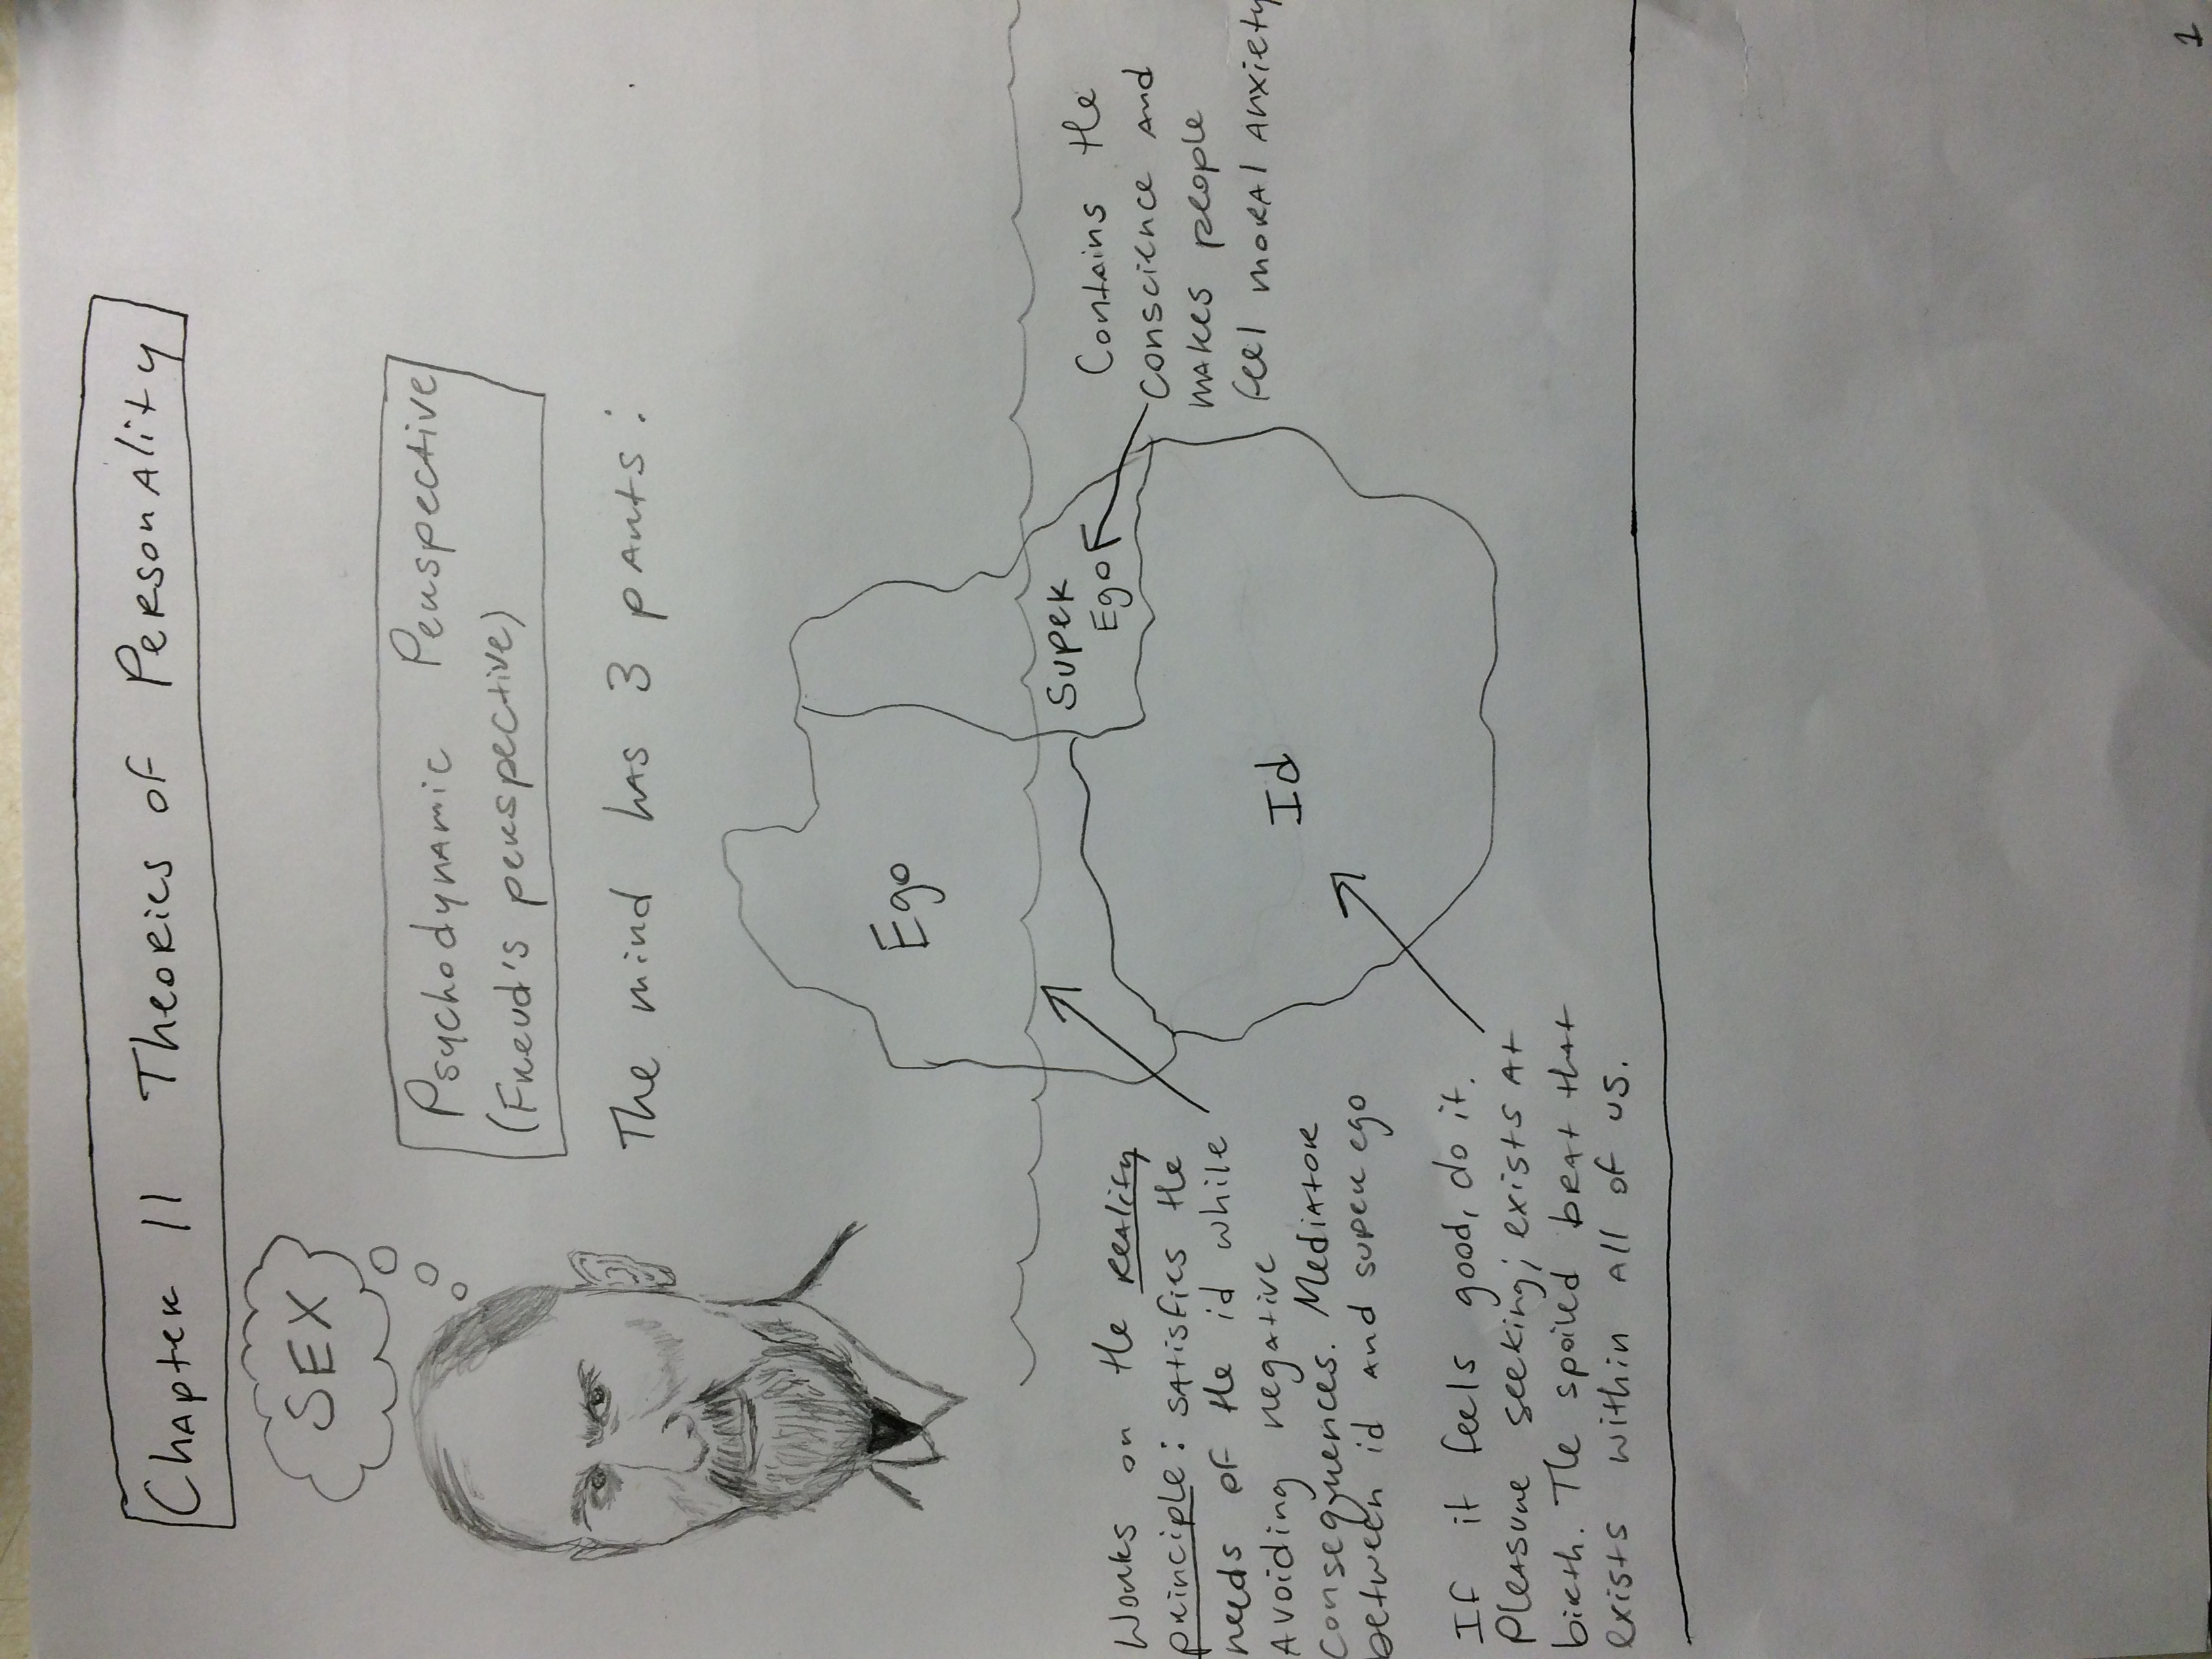 Chapter 11 Theories of Personality
SEX
Psychodynamic Perspective
(Freud's perspective)
The mind has 3 parts:
Ego
Super
Ego
Contains the
conscience and
makes people
feel moral anxiety
Id
Works on the reality
principle: satisfies the
needs of the id while
avoiding negative
consequences. Mediator
between id and super ego
If it feels good, do it.
Pleasure seeking; exists at
birth. The spoiled brat that
exists within all of us.
1